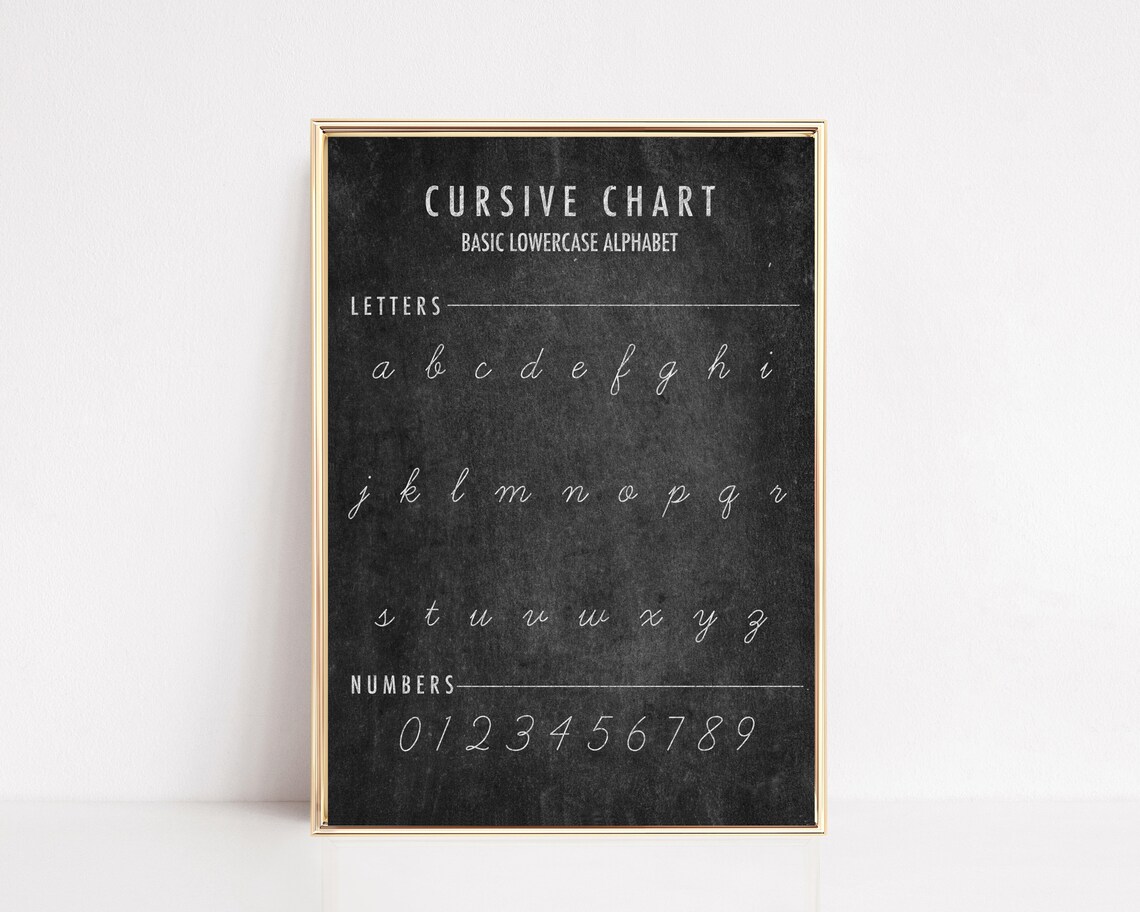 CURSIVE CHART
BASIC LOWERCASE ALPHABET
LETTERS
a b c d e f g h i
j k l m n o p q r
s t u v w x y z
NUMBERS
0 1 2 3 4 5 6 7 8 9